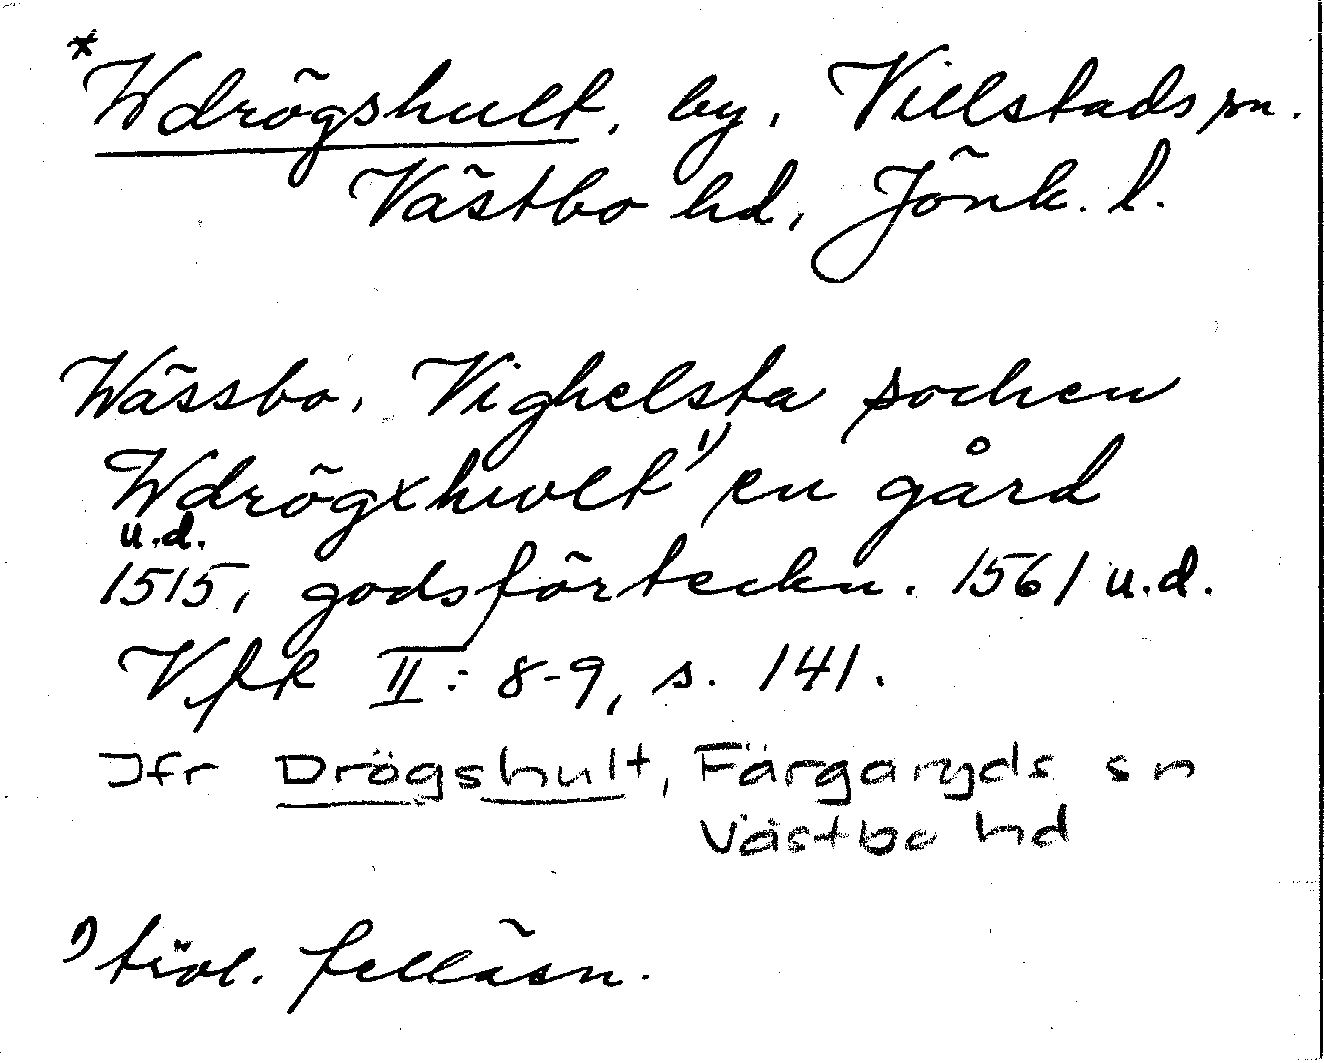 *Wdrögshult, by, Villstads sn.
Västbo hd, Jönk. l.
Wässbo, Vighelsta sochen
Wdrögxhwlt 1) en gård
u.d.
1515, godsförteckn. 1561 u.d.
Vfk II: 8-9, s. 141.
Jfr Drögshult, Färgaryds sn
Västbo hd
1) trol. felläsn.